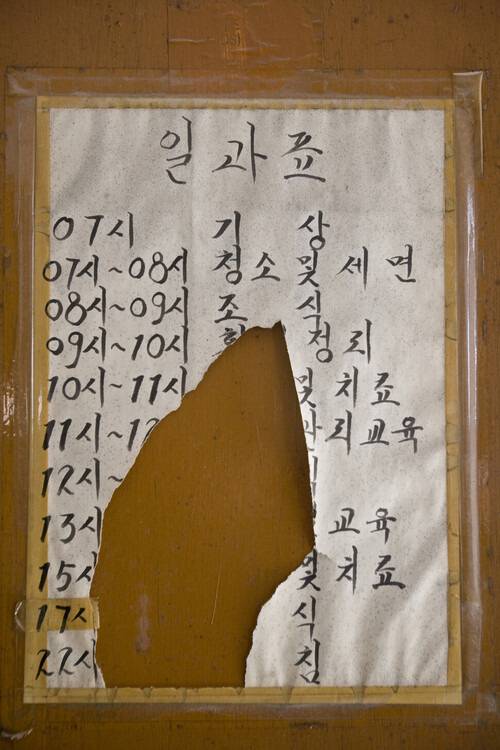 일과표
07시 기 상
07시~08시 청소 및 세 면
08시~09시 조 식
09시~10시 정 리
10시~11시 및 치 료
11시~ 리 교 육
12시~
13시 교 육
15시 및 치 료
17시 식
22시 침